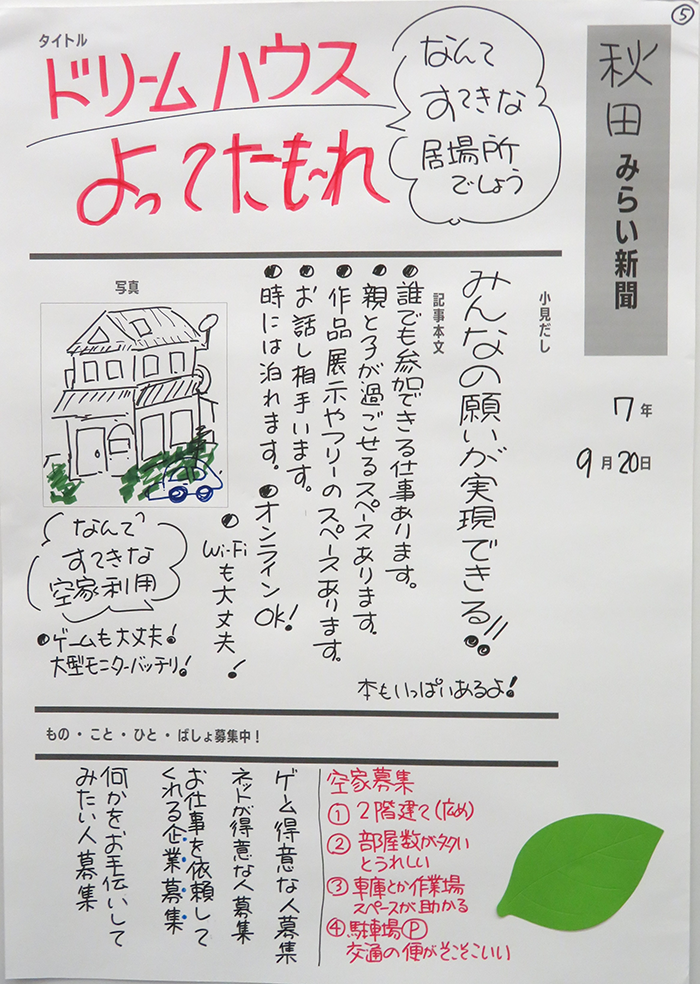 ⑤
秋田みらい新聞
7年
9月20日
タイトル
ドリームハウス
よってたもーれ
なんて
すてきな
居場所
でしょう
小見だし
みんなの願いが実現できる!!
記事本文
●誰でも参加できる仕事あります。
●親と子が過ごせるスペースあります。
●作品展示やフリーのスペースあります。
●お話し相手います。
●時には泊れます。●オンラインOK!
●Wi-Fiも大丈夫!
本もいっぱいあるよ!
写真
なんて
すてきな
空家利用
●ゲームも大丈夫!
大型モニターバッチリ!
もの・こと・ひと・ばしょ募集中!
空家募集
①2階建て(広め)
②部屋数が多い
とうれしい
③車庫とか作業場
スペースが助かる
④駐車場Ⓟ
交通の便がそこそこいい
ゲーム得意な人募集
ネットが得意な人募集
お仕事を依頼して
くれる企業募集
何かをお手伝いして
みたい人募集